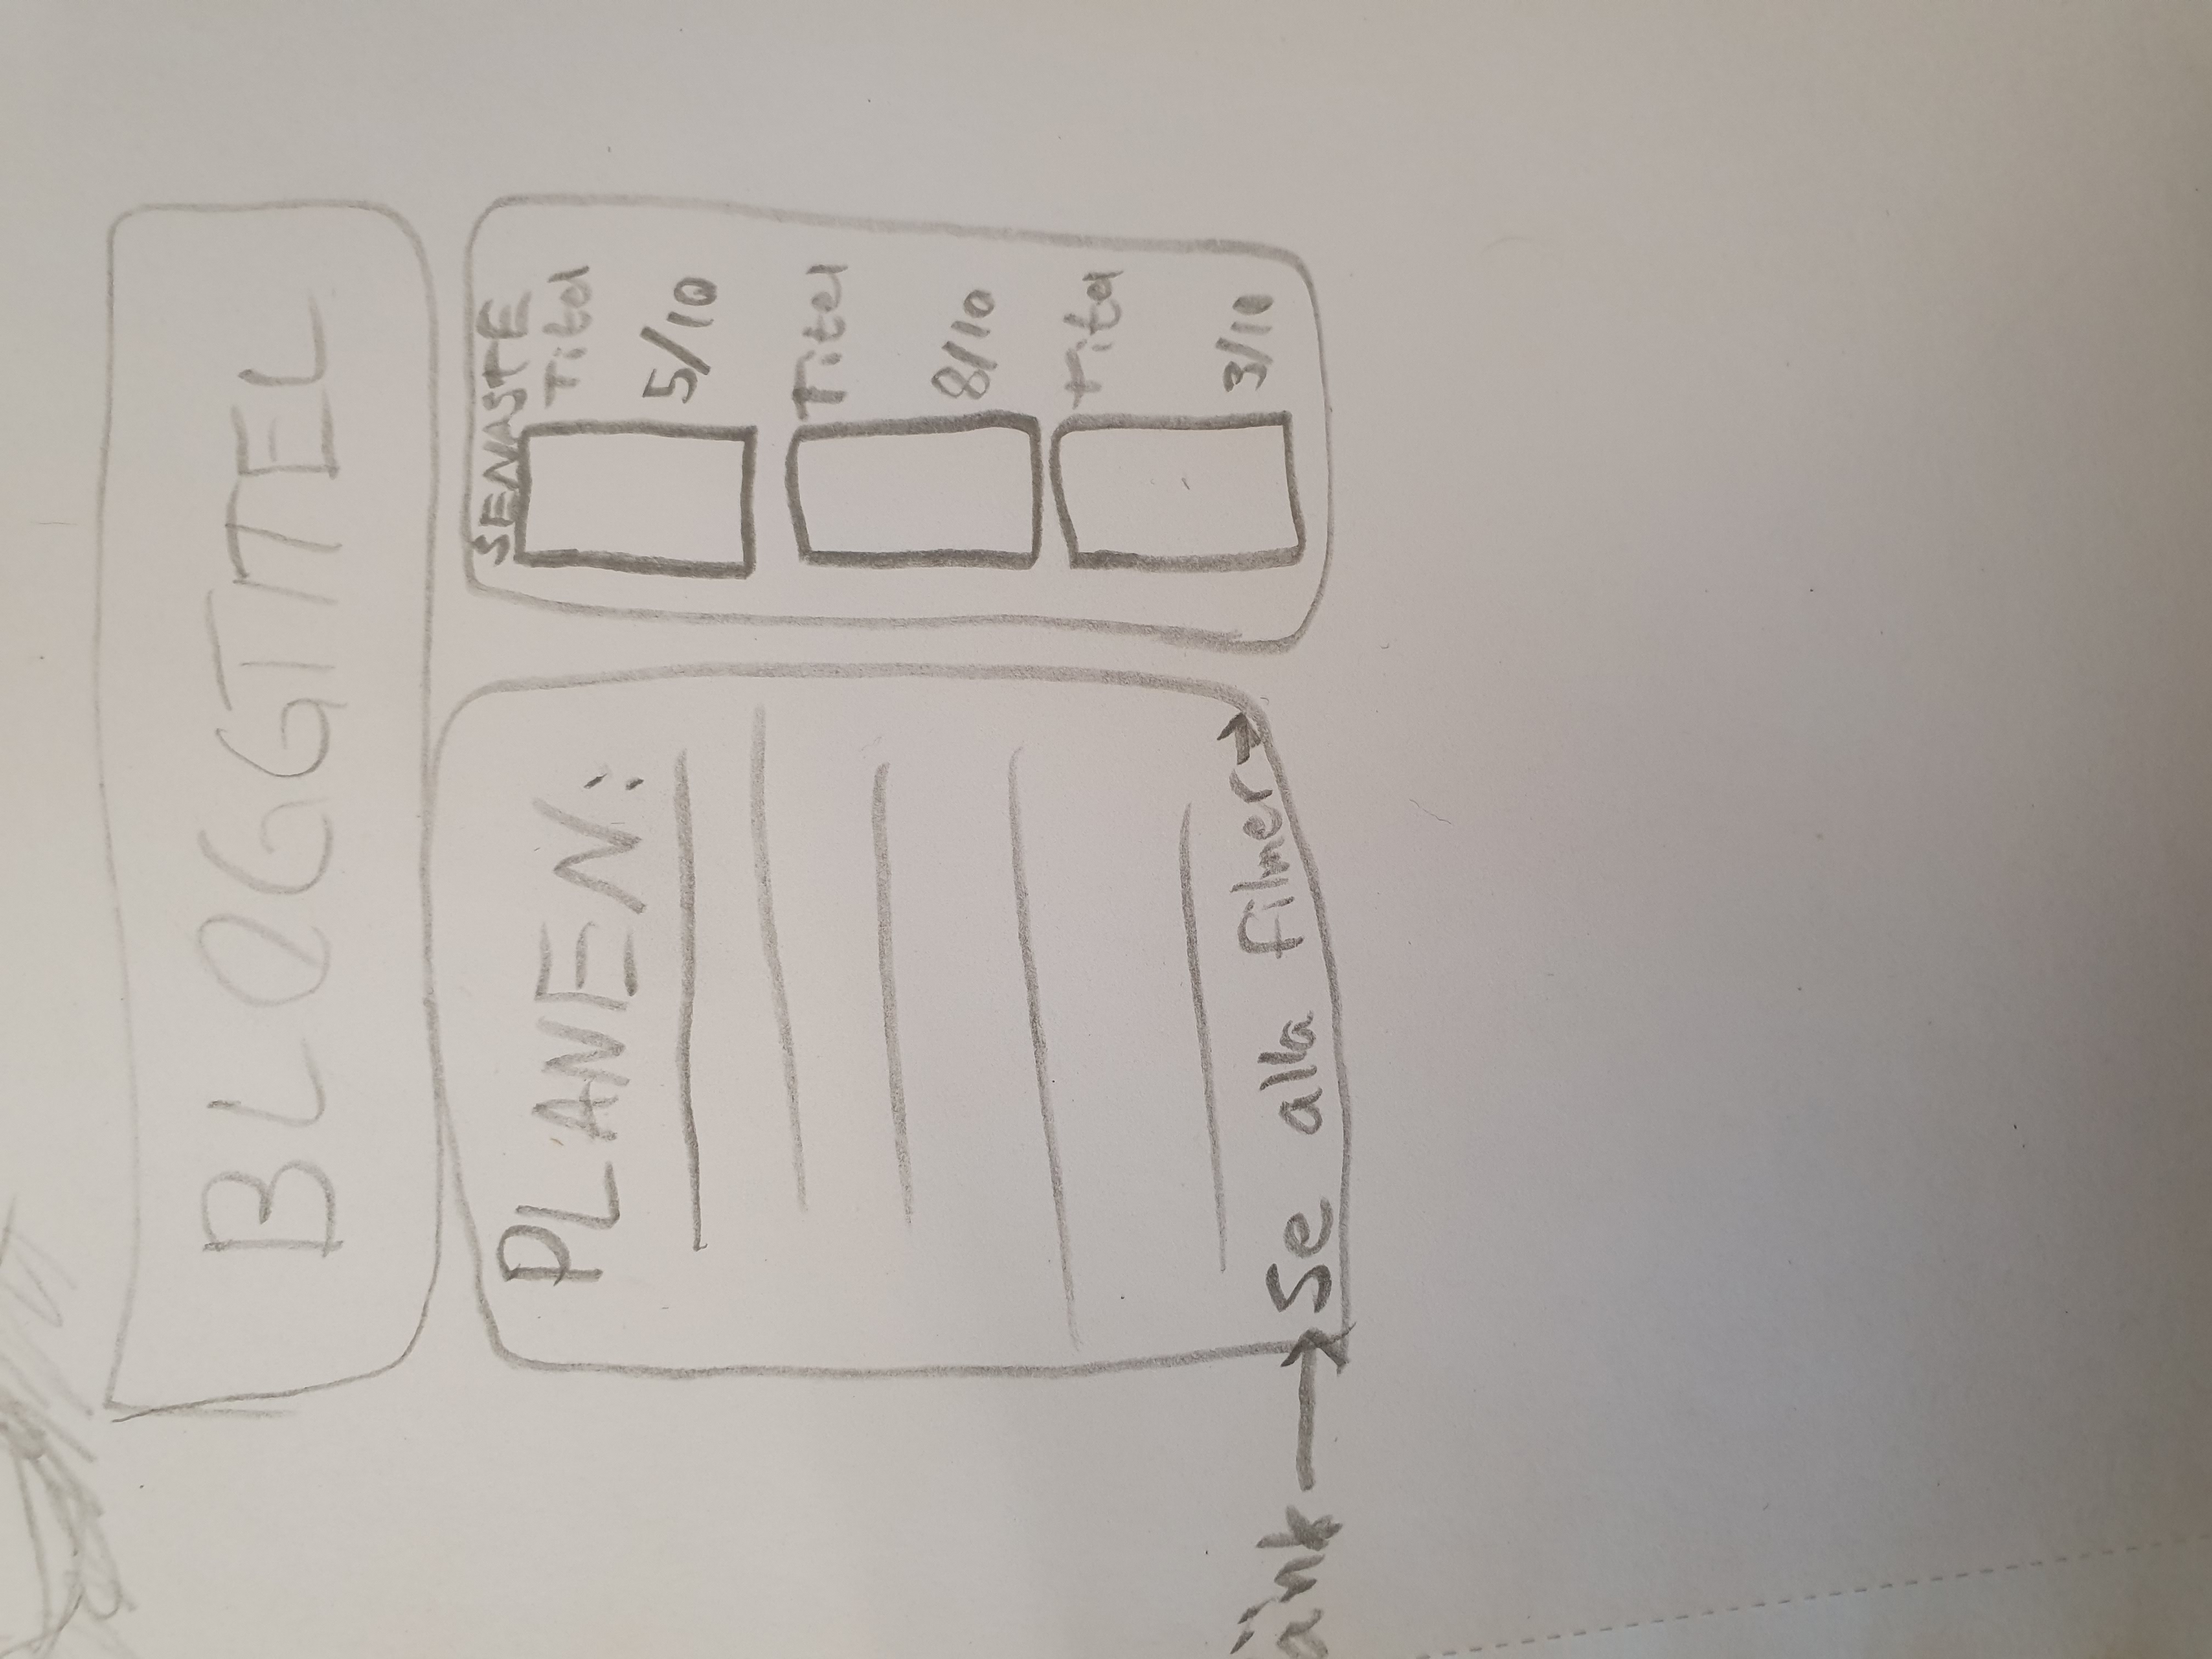 BLOGGTITEL
PLANEN:
Se alla filmer →
änk →
SENASTE
Titel
5/10
Titel
8/10
Titel
3/10